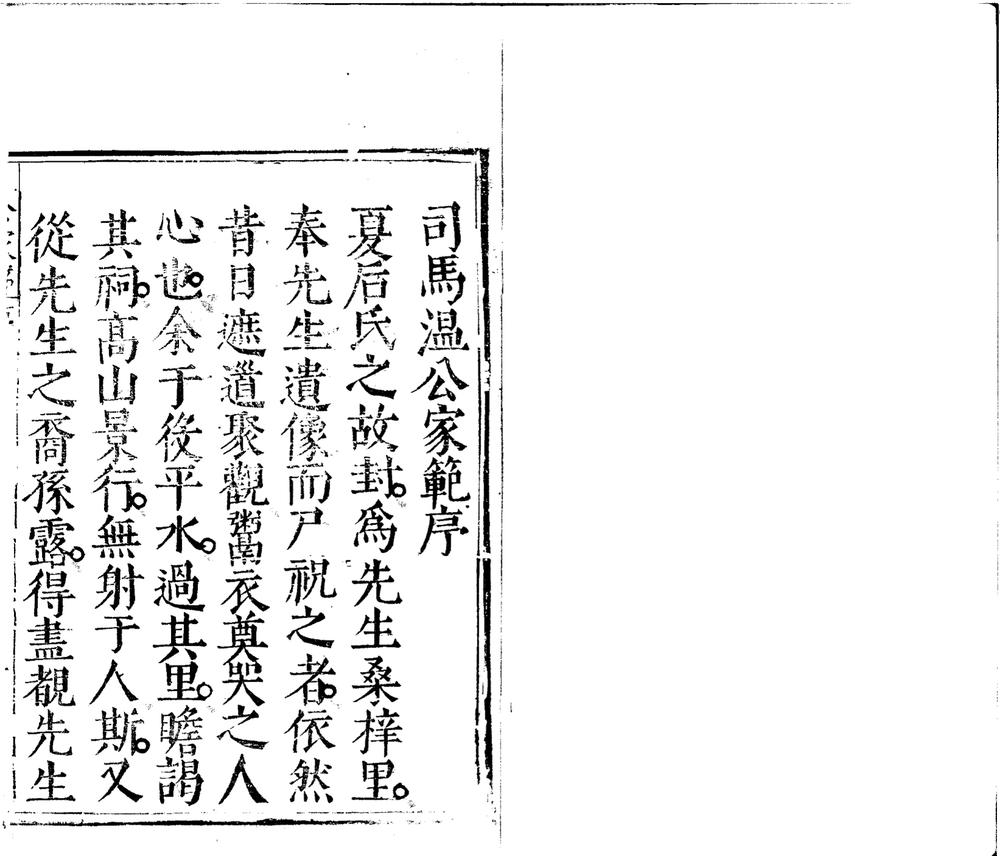 司馬温公家範序
夏后氏之故封。爲先生桑梓里。
奉先生遺像而尸祝之者。依然
昔日遮道聚觀鬻衣奠哭之人
心也。余于後平水。過其里。瞻謁
其祠。高山景行。無射于人斯。又
從先生之裔孫露。得盡覩先生